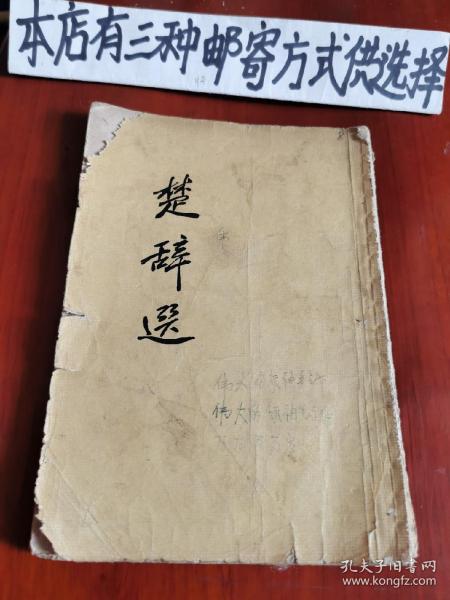 本店有三种邮寄方式供选择
楚
辞
選
伟大
伟大
孔夫子旧书网
www.kongfz.com